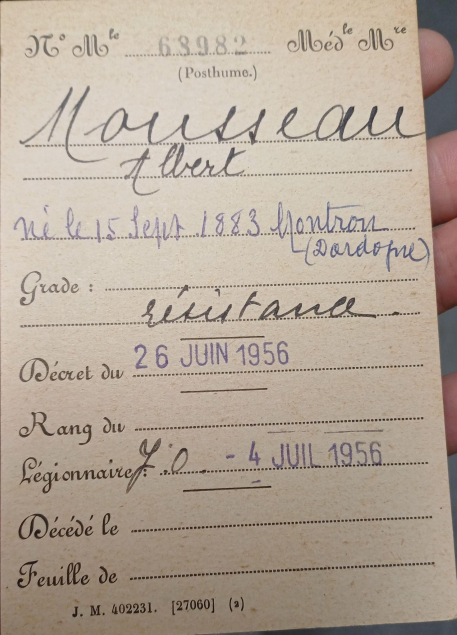 N° Mle 68982 Médle Mre
(Posthume.)
Mousseau
Albert
né le 15 Sept. 1883 Nontron
(Dordogne)
Grade :
résistance.
Décret du 26 JUIN 1956
Rang du
Légionnaire : J.O. - 4 JUIL 1956
Décédé le
Feuille de
J. M. 402231. [27060] (2)